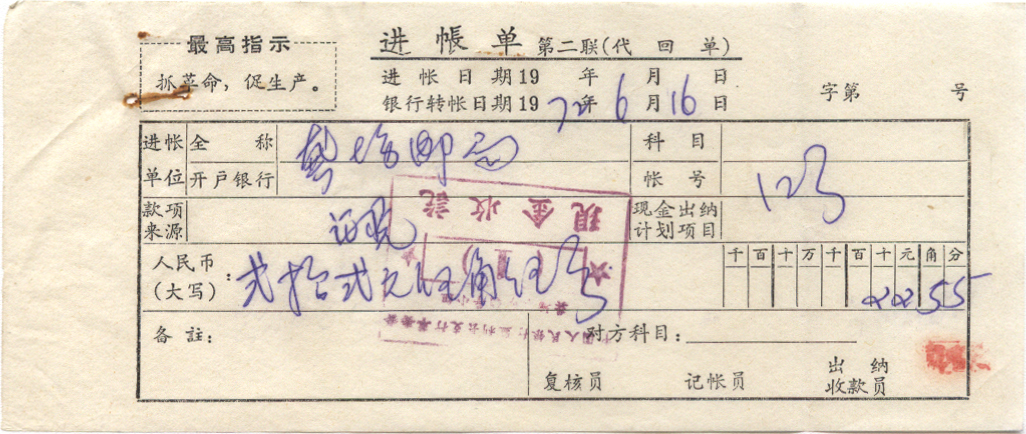 最高指示
抓革命，促生产。
进帐单 第二联(代回单)
进帐日期19 年 月 日
银行转帐日期1972年6月16日
字第 号
进帐单位 全称 邮局 科目
开户银行 帐号 123
款项来源 现金出纳计划项目
人民币(大写)：弍拾弍元伍角伍分 千百十万千百十元角分
2255
现金收讫
备註： 对方科目：
复核员 记帐员 出纳收款员